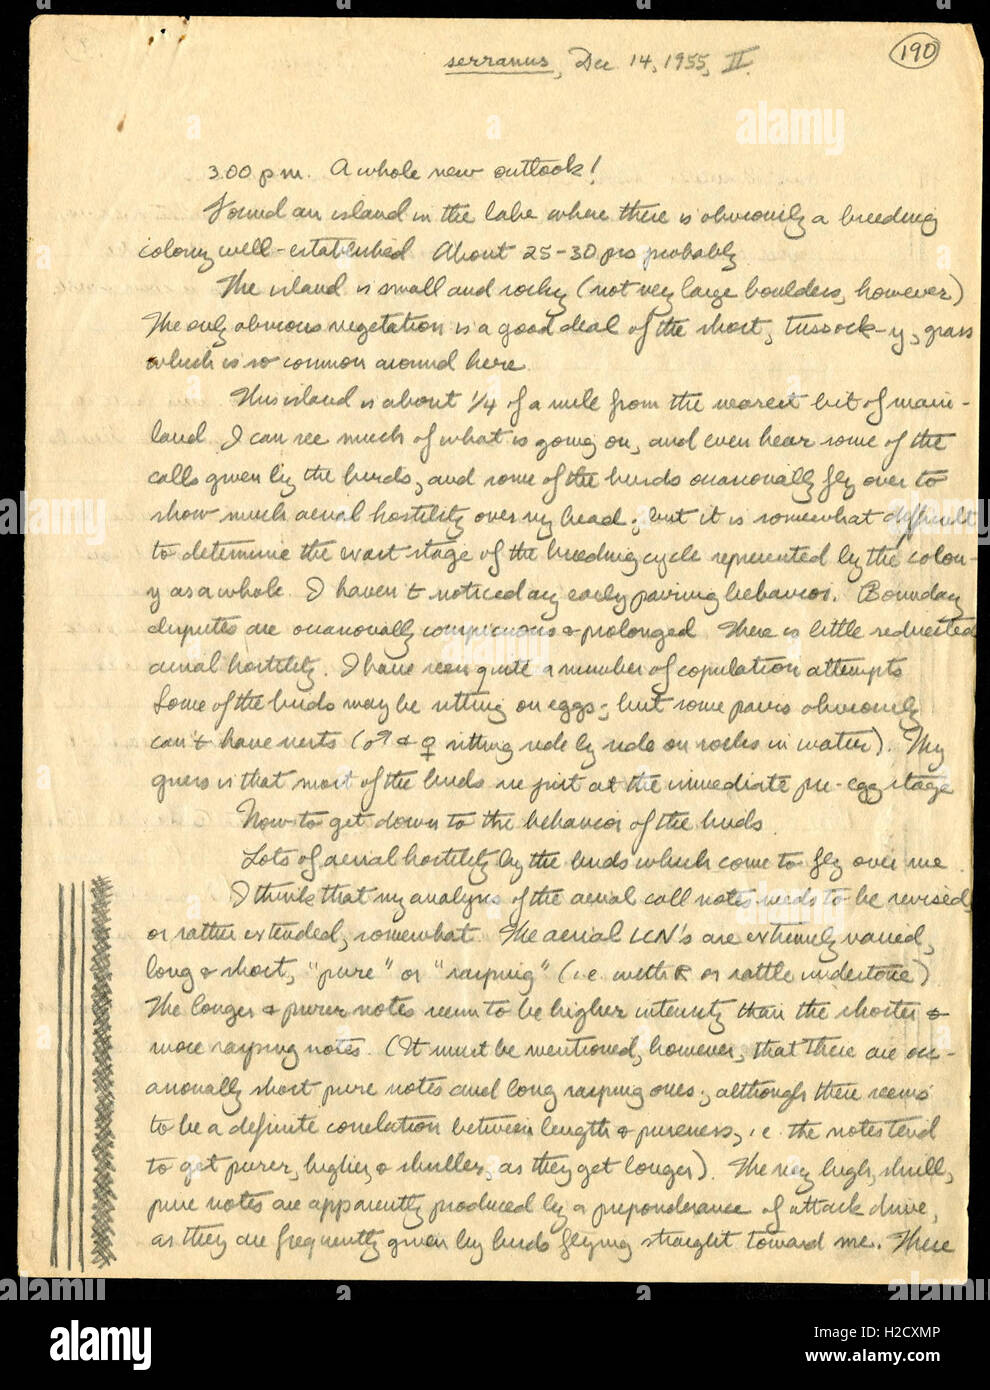 190
serranus, Dec 14, 1955, II.
3.00 p.m. A whole new outlook!
Found an island in the lake where there is obviously a breeding
colony well-established About 25-30 prs probably.
The island is small and rocky (not very large boulders, however)
The only obvious vegetation is a good deal of the short, tussock-y, grass
which is so common around here.
This island is about 1/4 of a mile from the nearest bit of main-
land. I can see much of what is going on, and even hear some of the
calls given by the birds, and some of the birds occasionally fly over to
show much aerial hostility over my head; but it is somewhat difficult
to determine the exact stage of the breeding cycle represented by the colon-
y as a whole. I haven't noticed any early pairing behavior. Boundary
disputes are occasionally conspicuous & prolonged. There is little redirected
aerial hostility. I have seen quite a number of copulation attempts
Some of the birds may be sitting on eggs; but some pairs obviously
can't have nests (♂ & ♀ sitting side by side on rocks in water). My
guess is that most of the birds are just at the immediate pre-egg stage
Now to get down to the behavior of the birds.
Lots of aerial hostility by the birds which come to fly over me.
I think that my analysis of the aerial call notes needs to be revised,
or rather extended, somewhat. The aerial LCN's are extremely varied,
long & short, "pure" or "rasping" (i.e. with R or rattle undertone)
The longer & purer notes seem to be higher intensity than the shorter &
more rasping notes. (It must be mentioned, however, that there are occ-
asionally short pure notes and long rasping ones; although there seems
to be a definite correlation between length & pureness, i.e. the notes tend
to get purer, higher, & shriller, as they get longer). The very high, shrill,
pure notes are apparently produced by a preponderance of attack drive,
as they are frequently given by birds flying straight toward me. There
alamy
H2CXMP
www.alamy.com